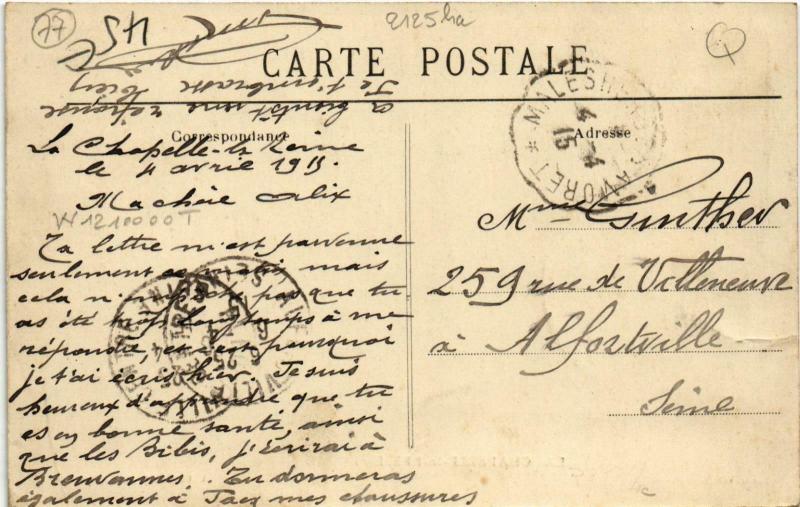 77
2125ha
CARTE POSTALE
à bientôt une réponse
Je t'embrasse
Correspondance
La Chapelle-la Reine
le 4 avril 1915.
Ma chère Alix
W1210000T
Ta lettre m'est parvenue
seulement ce matin mais
cela n'empêche pas que tu
as été trop longtemps à me
répondre, et c'est pourquoi
je t'ai écris hier. Je suis
heureux d'apprendre que tu
es en bonne santé, ainsi
que les Bibis, j'écrirai à
Brevannes. Tu donneras
également à Jacq mes chaussures
Adresse
4-4
15
Mme Gunther
259 rue de Villeneuve
à Alfortville
Seine